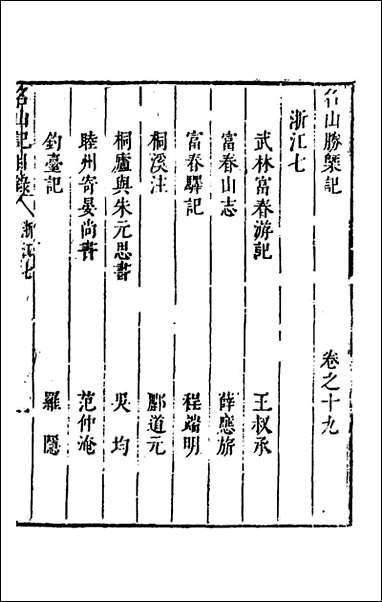 名山勝槩記 卷之十九
浙江七
武林富春游記 王叔承
富春山志 薛應旂
富春驛記 程端明
桐溪注 酈道元
桐廬與朱元思書 吳均
睦州寄晏尚書 范仲淹
釣臺記 羅隱
名山記目錄 浙江七